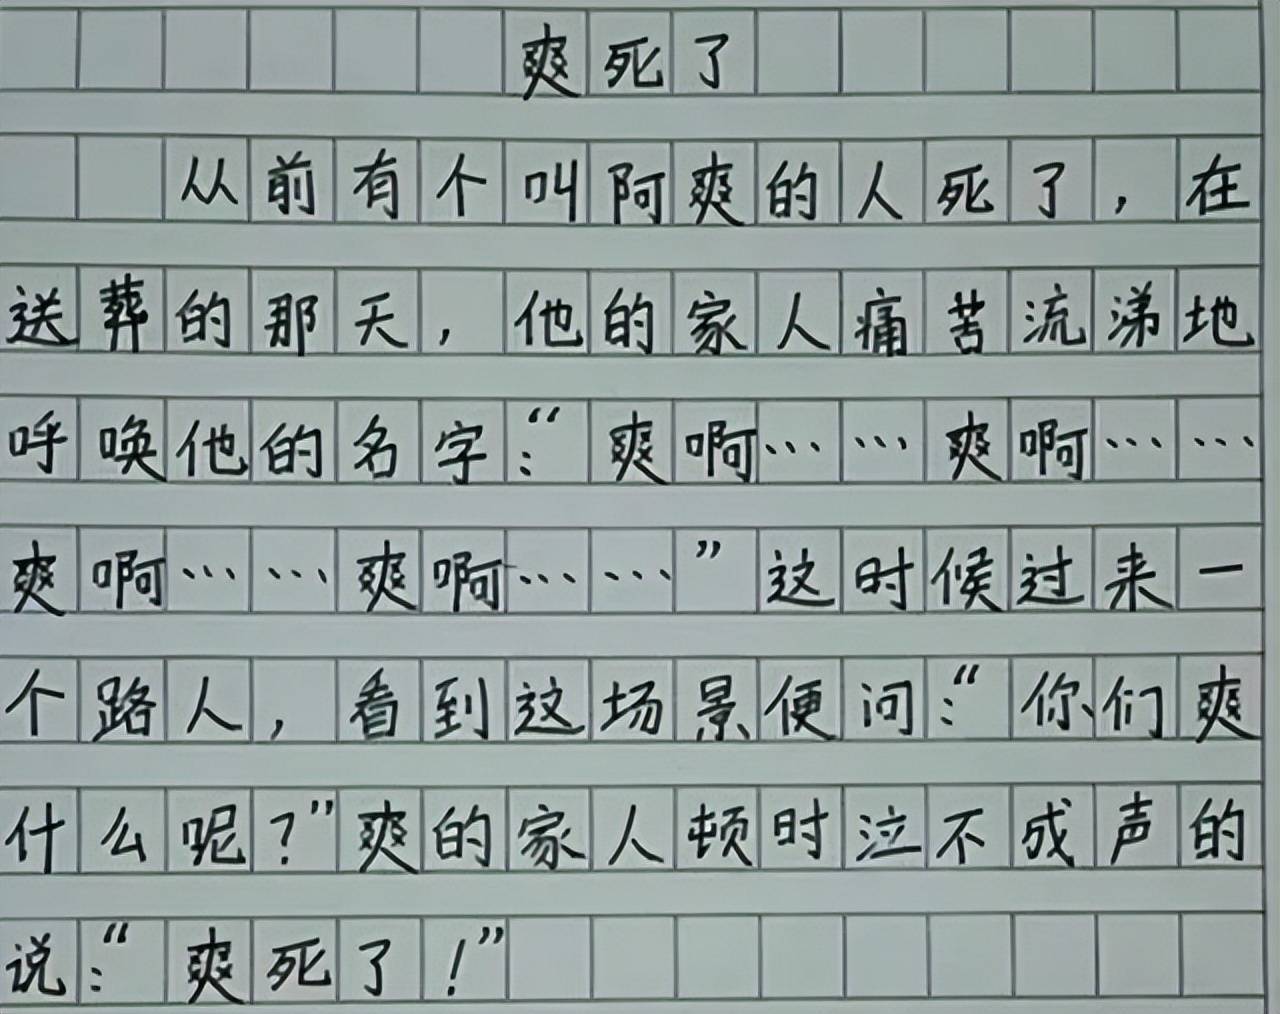 爽死了
从前有个叫阿爽的人死了，在
送葬的那天，他的家人痛苦流涕地
呼唤他的名字：“爽啊……爽啊……
爽啊……爽啊……”这时候过来一
个路人，看到这场景便问：“你们爽
什么呢？”爽的家人顿时泣不成声的
说：“爽死了！”